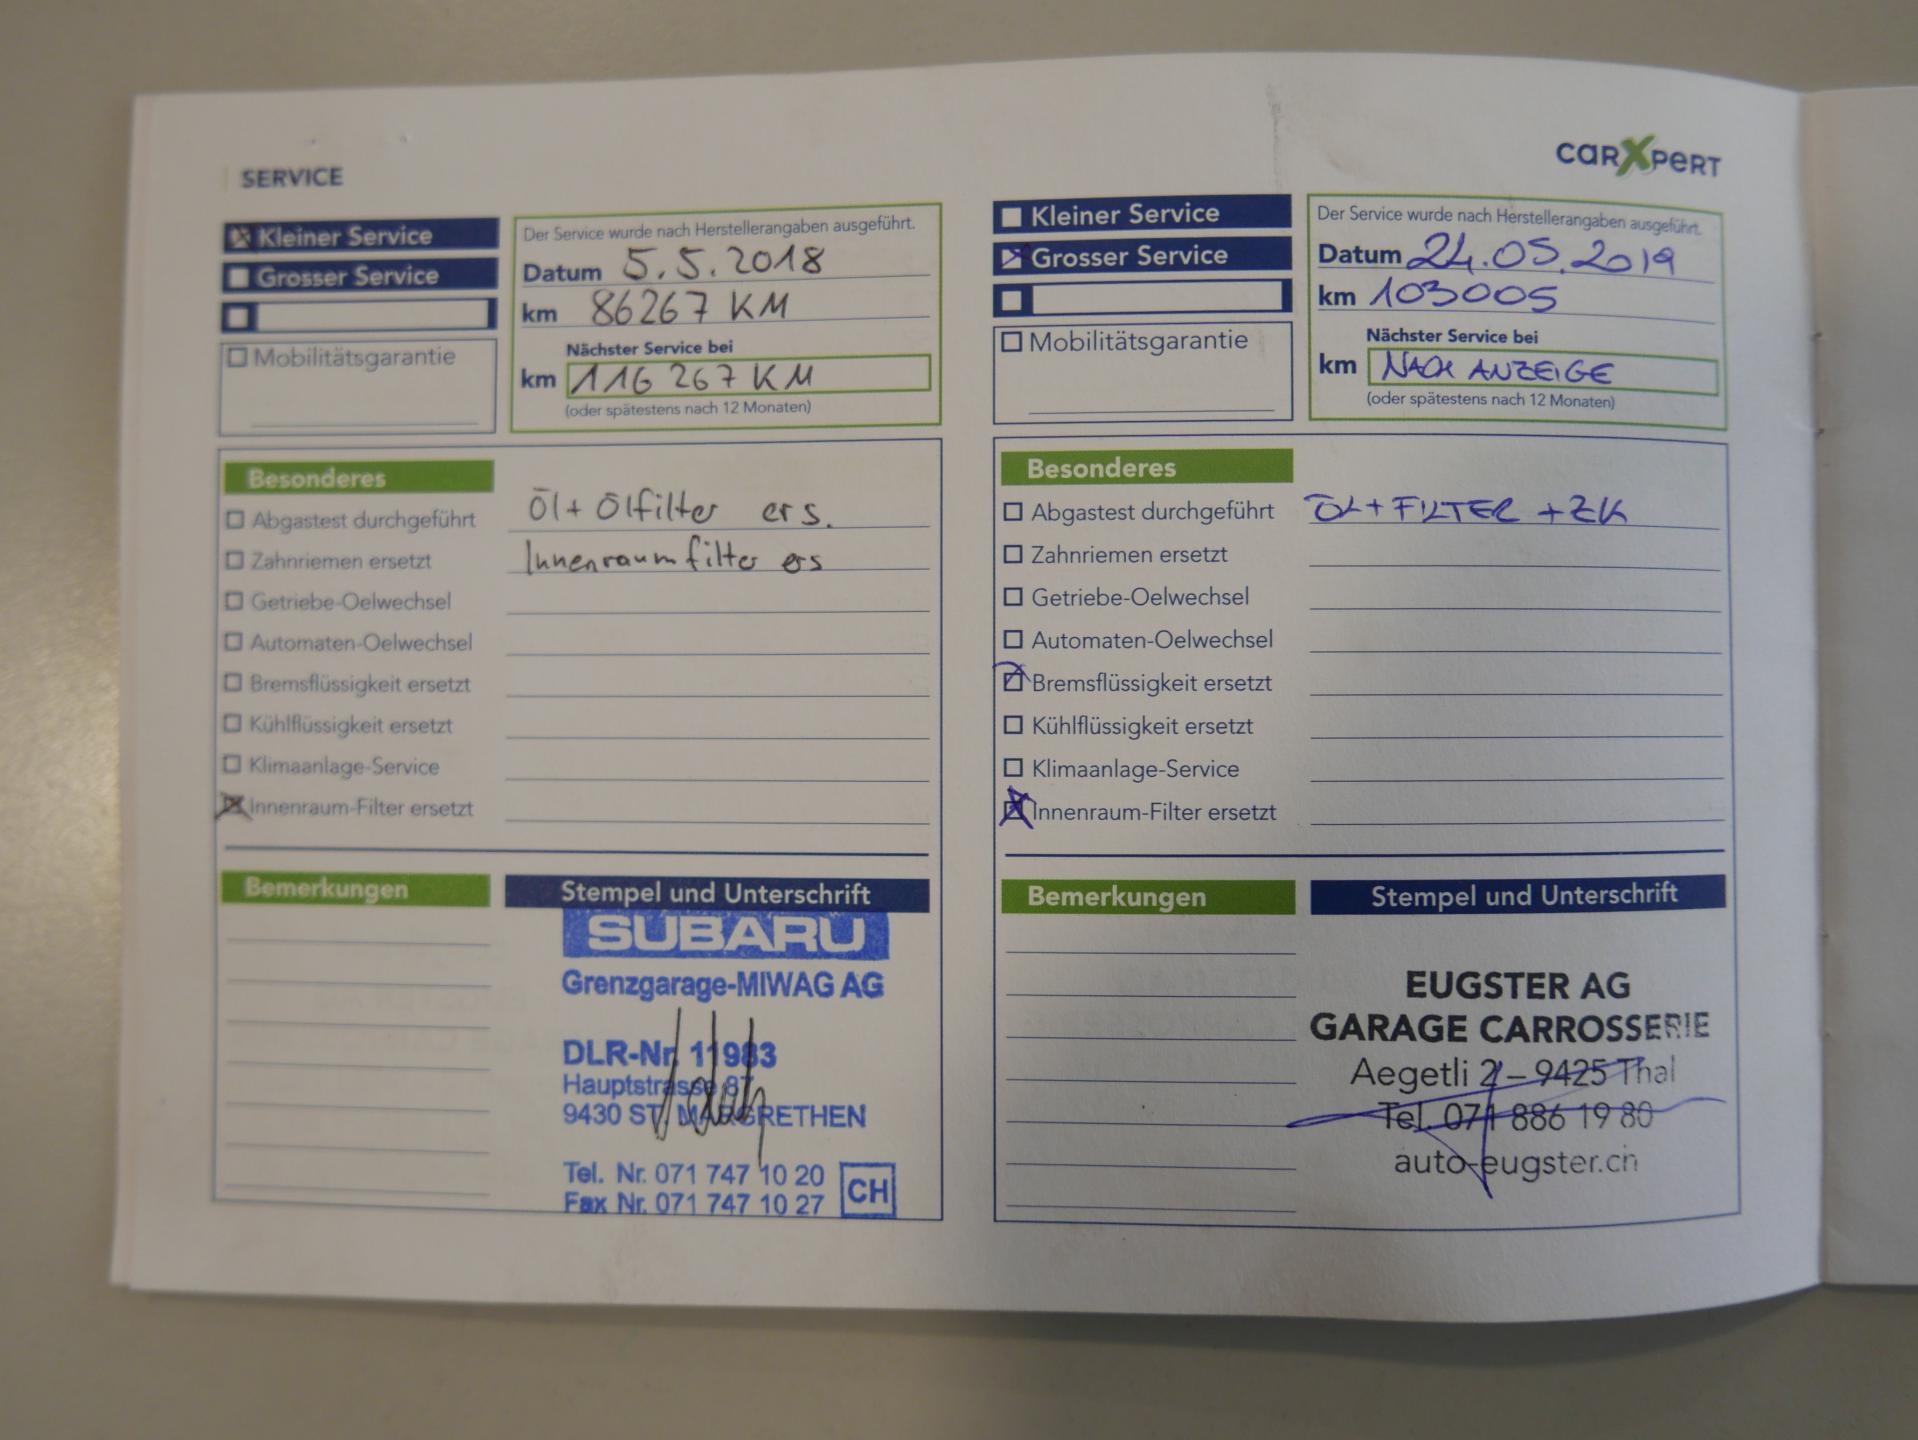 SERVICE
Kleiner Service
Grosser Service
Mobilitätsgarantie
Der Service wurde nach Herstellerangaben ausgeführt.
Datum 5.5.2018
km 86267 KM
Nächster Service bei
km 116 267 KM
(oder spätestens nach 12 Monaten)
Besonderes
Abgastest durchgeführt
Zahnriemen ersetzt
Getriebe-Oelwechsel
Automaten-Oelwechsel
Bremsflüssigkeit ersetzt
Kühlflüssigkeit ersetzt
Klimaanlage-Service
Innenraum-Filter ersetzt
Öl + Ölfilter ers.
Innenraumfilter ers
Bemerkungen
Stempel und Unterschrift
SUBARU
Grenzgarage-MIWAG AG
DLR-Nr. 11983
Hauptstrasse 87
9430 ST. MARGRETHEN
Tel. Nr. 071 747 10 20
Fax Nr. 071 747 10 27
CH
carXpert
Kleiner Service
Grosser Service
Mobilitätsgarantie
Der Service wurde nach Herstellerangaben ausgeführt.
Datum 24.05.2019
km 103005
Nächster Service bei
km NACH ANZEIGE
(oder spätestens nach 12 Monaten)
Besonderes
Abgastest durchgeführt
Zahnriemen ersetzt
Getriebe-Oelwechsel
Automaten-Oelwechsel
Bremsflüssigkeit ersetzt
Kühlflüssigkeit ersetzt
Klimaanlage-Service
Innenraum-Filter ersetzt
ÖL + FILTER + ZK
Bemerkungen
Stempel und Unterschrift
EUGSTER AG
GARAGE CARROSSERIE
Aegetli 2 – 9425 Thal
Tel. 071 886 19 80
auto-eugster.ch